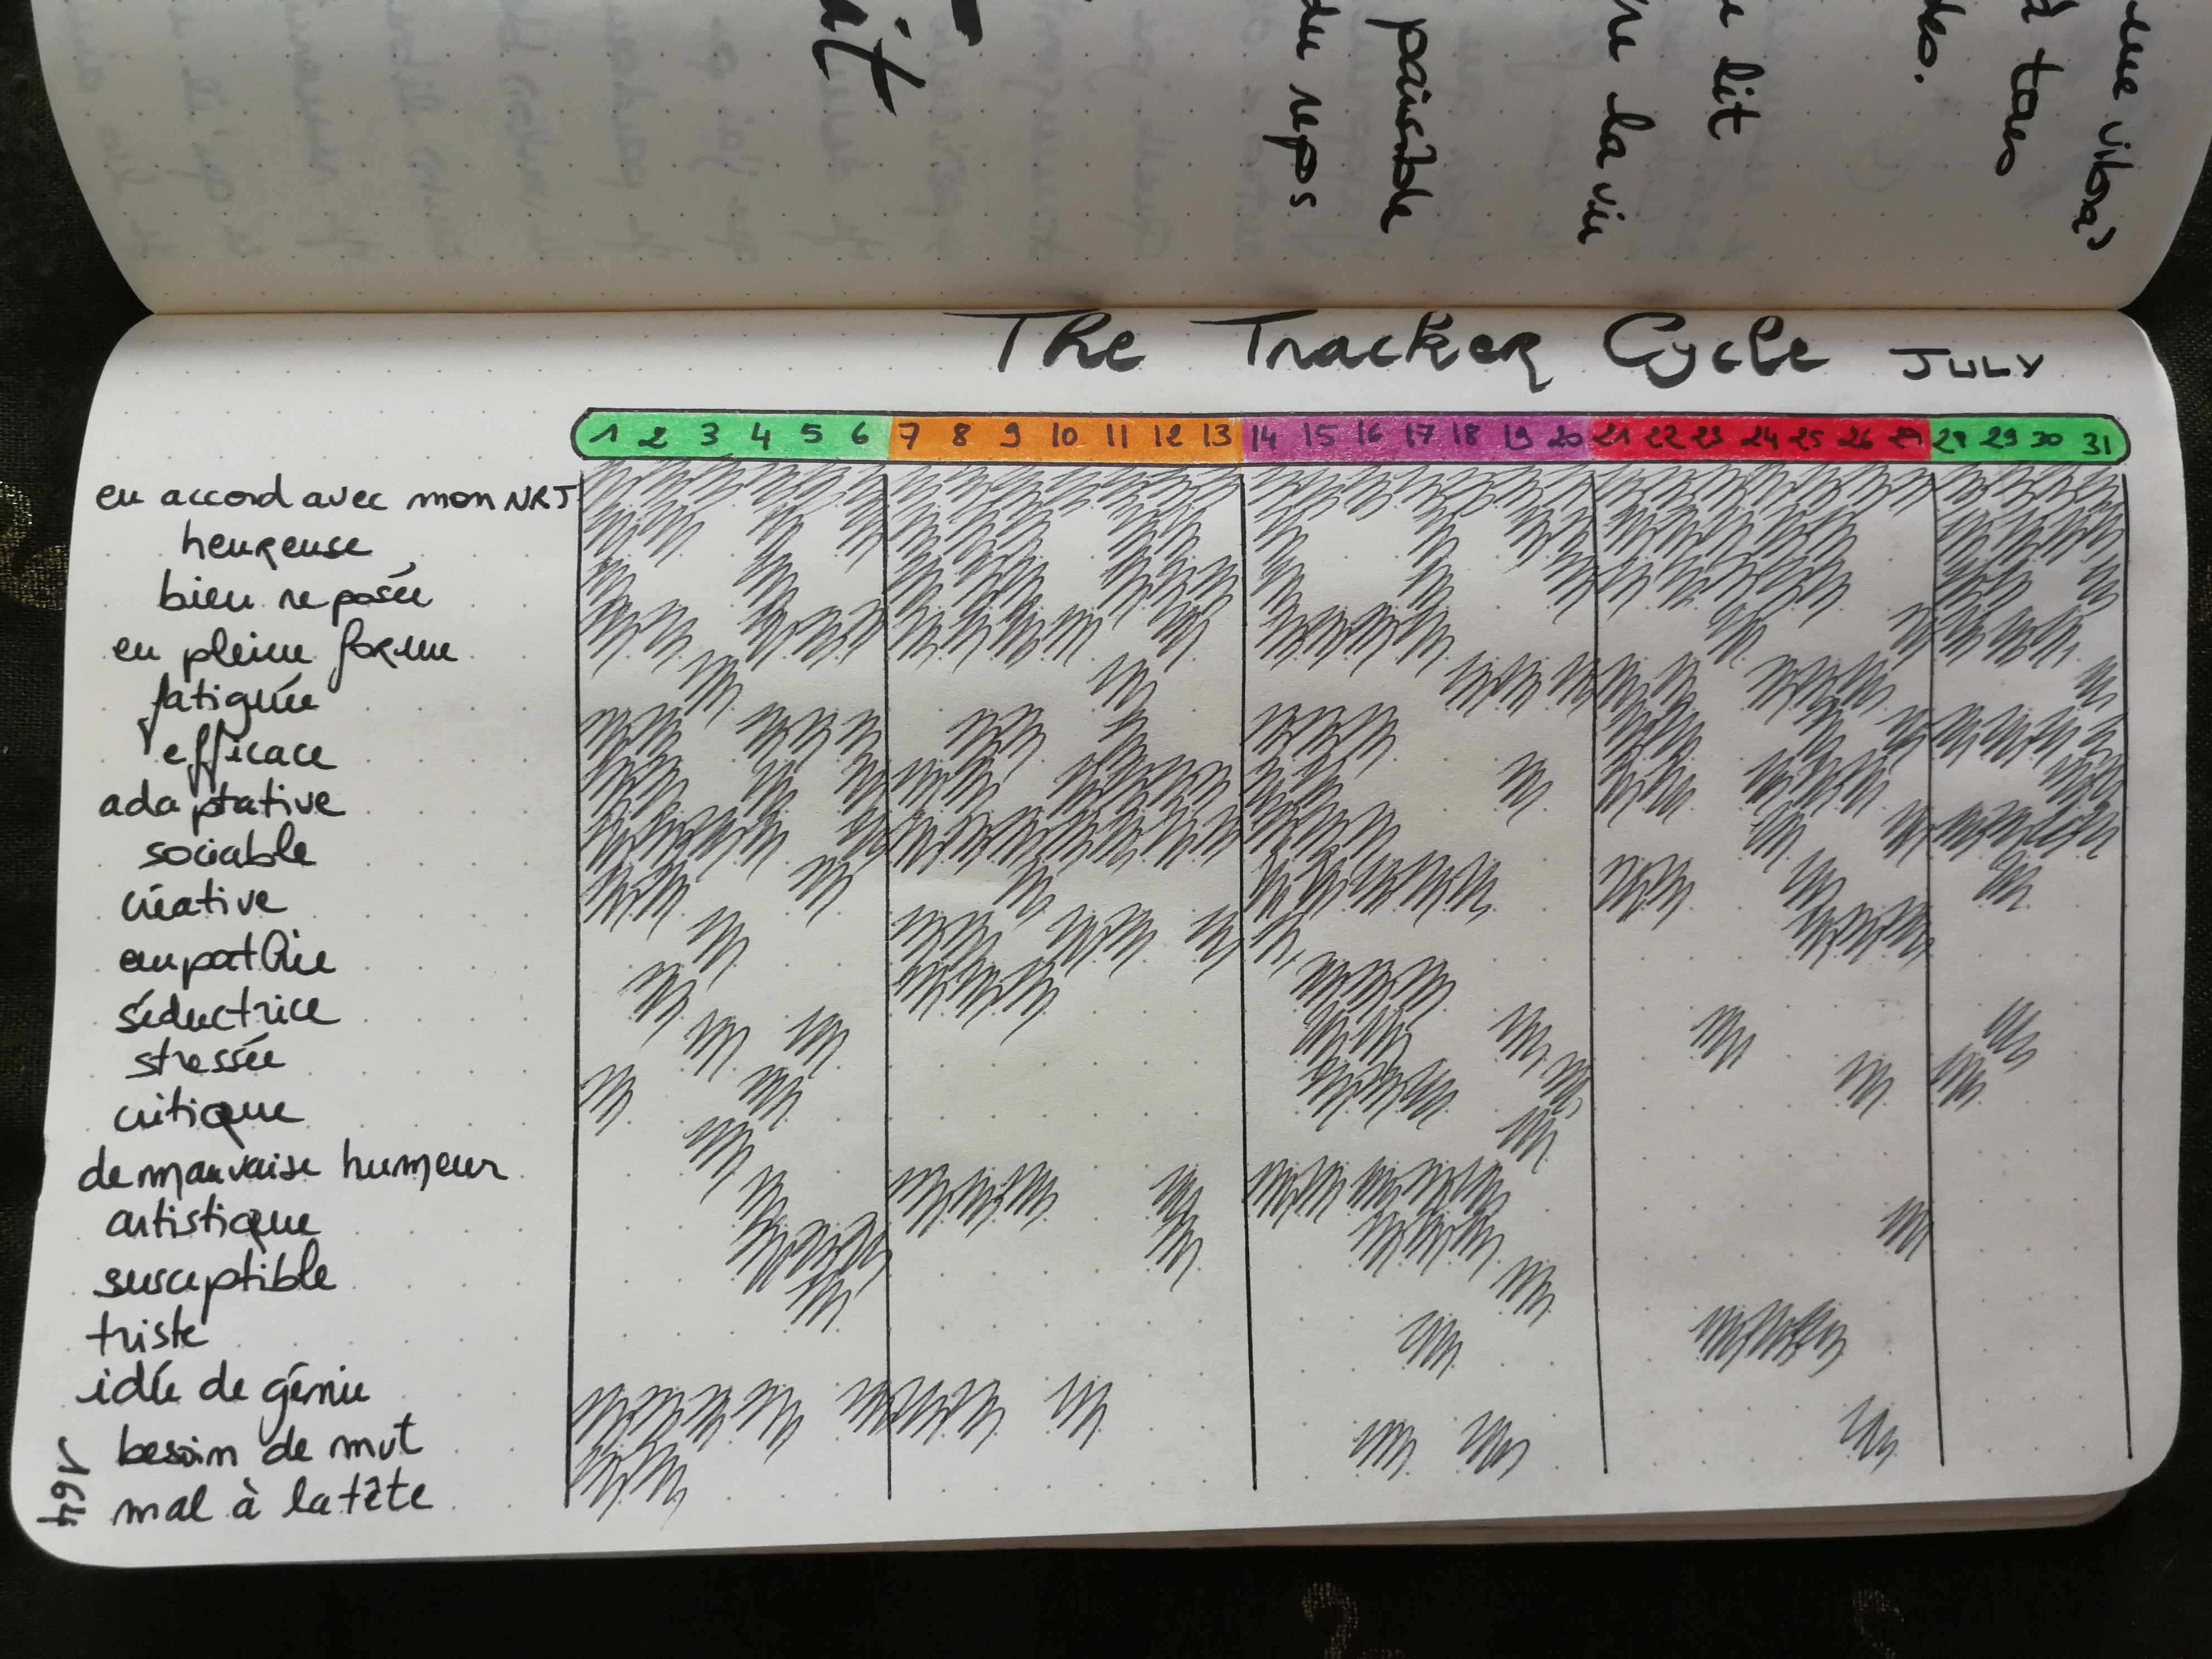 ait
du reps
paisible
re la vie
lit
d tous
The Tracker Cycle JULY
1 2 3 4 5 6 7 8 9 10 11 12 13 14 15 16 17 18 19 20 21 22 23 24 25 26 27 28 29 30 31
en accord avec mon NRJ
heureuse
bien reposée
en pleine forme
fatiguée
efficace
adaptative
sociable
créative
empathie
séductrice
stressée
critique
de mauvaise humeur
artistique
susceptible
triste
idée de génie
besoin de mvt
mal à la tête
164